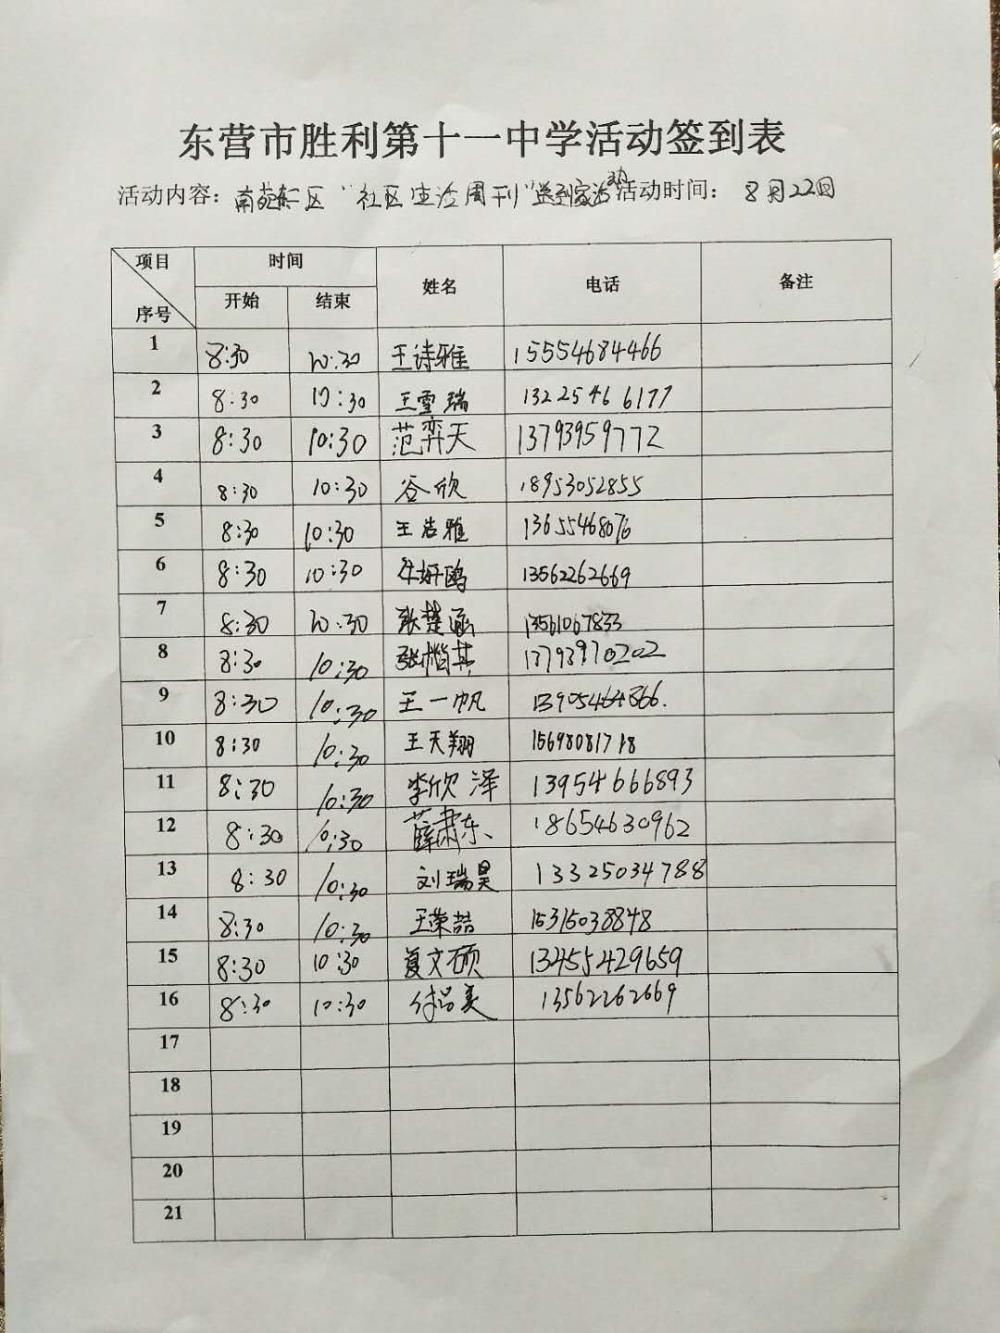 东营市胜利第十一中学活动签到表
活动内容：南苑东区“社区生活周刊”送到家活动 活动时间： 8月22日
项目 时间 姓名 电话 备注
序号 开始 结束
1 8:30 10:30 王诗雅 15554684466
2 8:30 10:30 王雪瑞 13225466177
3 8:30 10:30 范弈天 13793959772
4 8:30 10:30 谷欣 18953052855
5 8:30 10:30 王浩雅 13655468076
6 8:30 10:30 牛妍鸥 13562262669
7 8:30 10:30 张楚涵 13561067833
8 8:30 10:30 张楷其 13793970202
9 8:30 10:30 王一帆 13905464866.
10 8:30 10:30 王天翔 15698081718
11 8:30 10:30 李欣泽 13954666893
12 8:30 10:30 薛肃东 18654630962
13 8:30 10:30 刘瑞昊 13325034788
14 8:30 10:30 王荣喆 15315038848
15 8:30 10:30 夏文硕 13455429659
16 8:30 10:30 13562262669
17
18
19
20
21